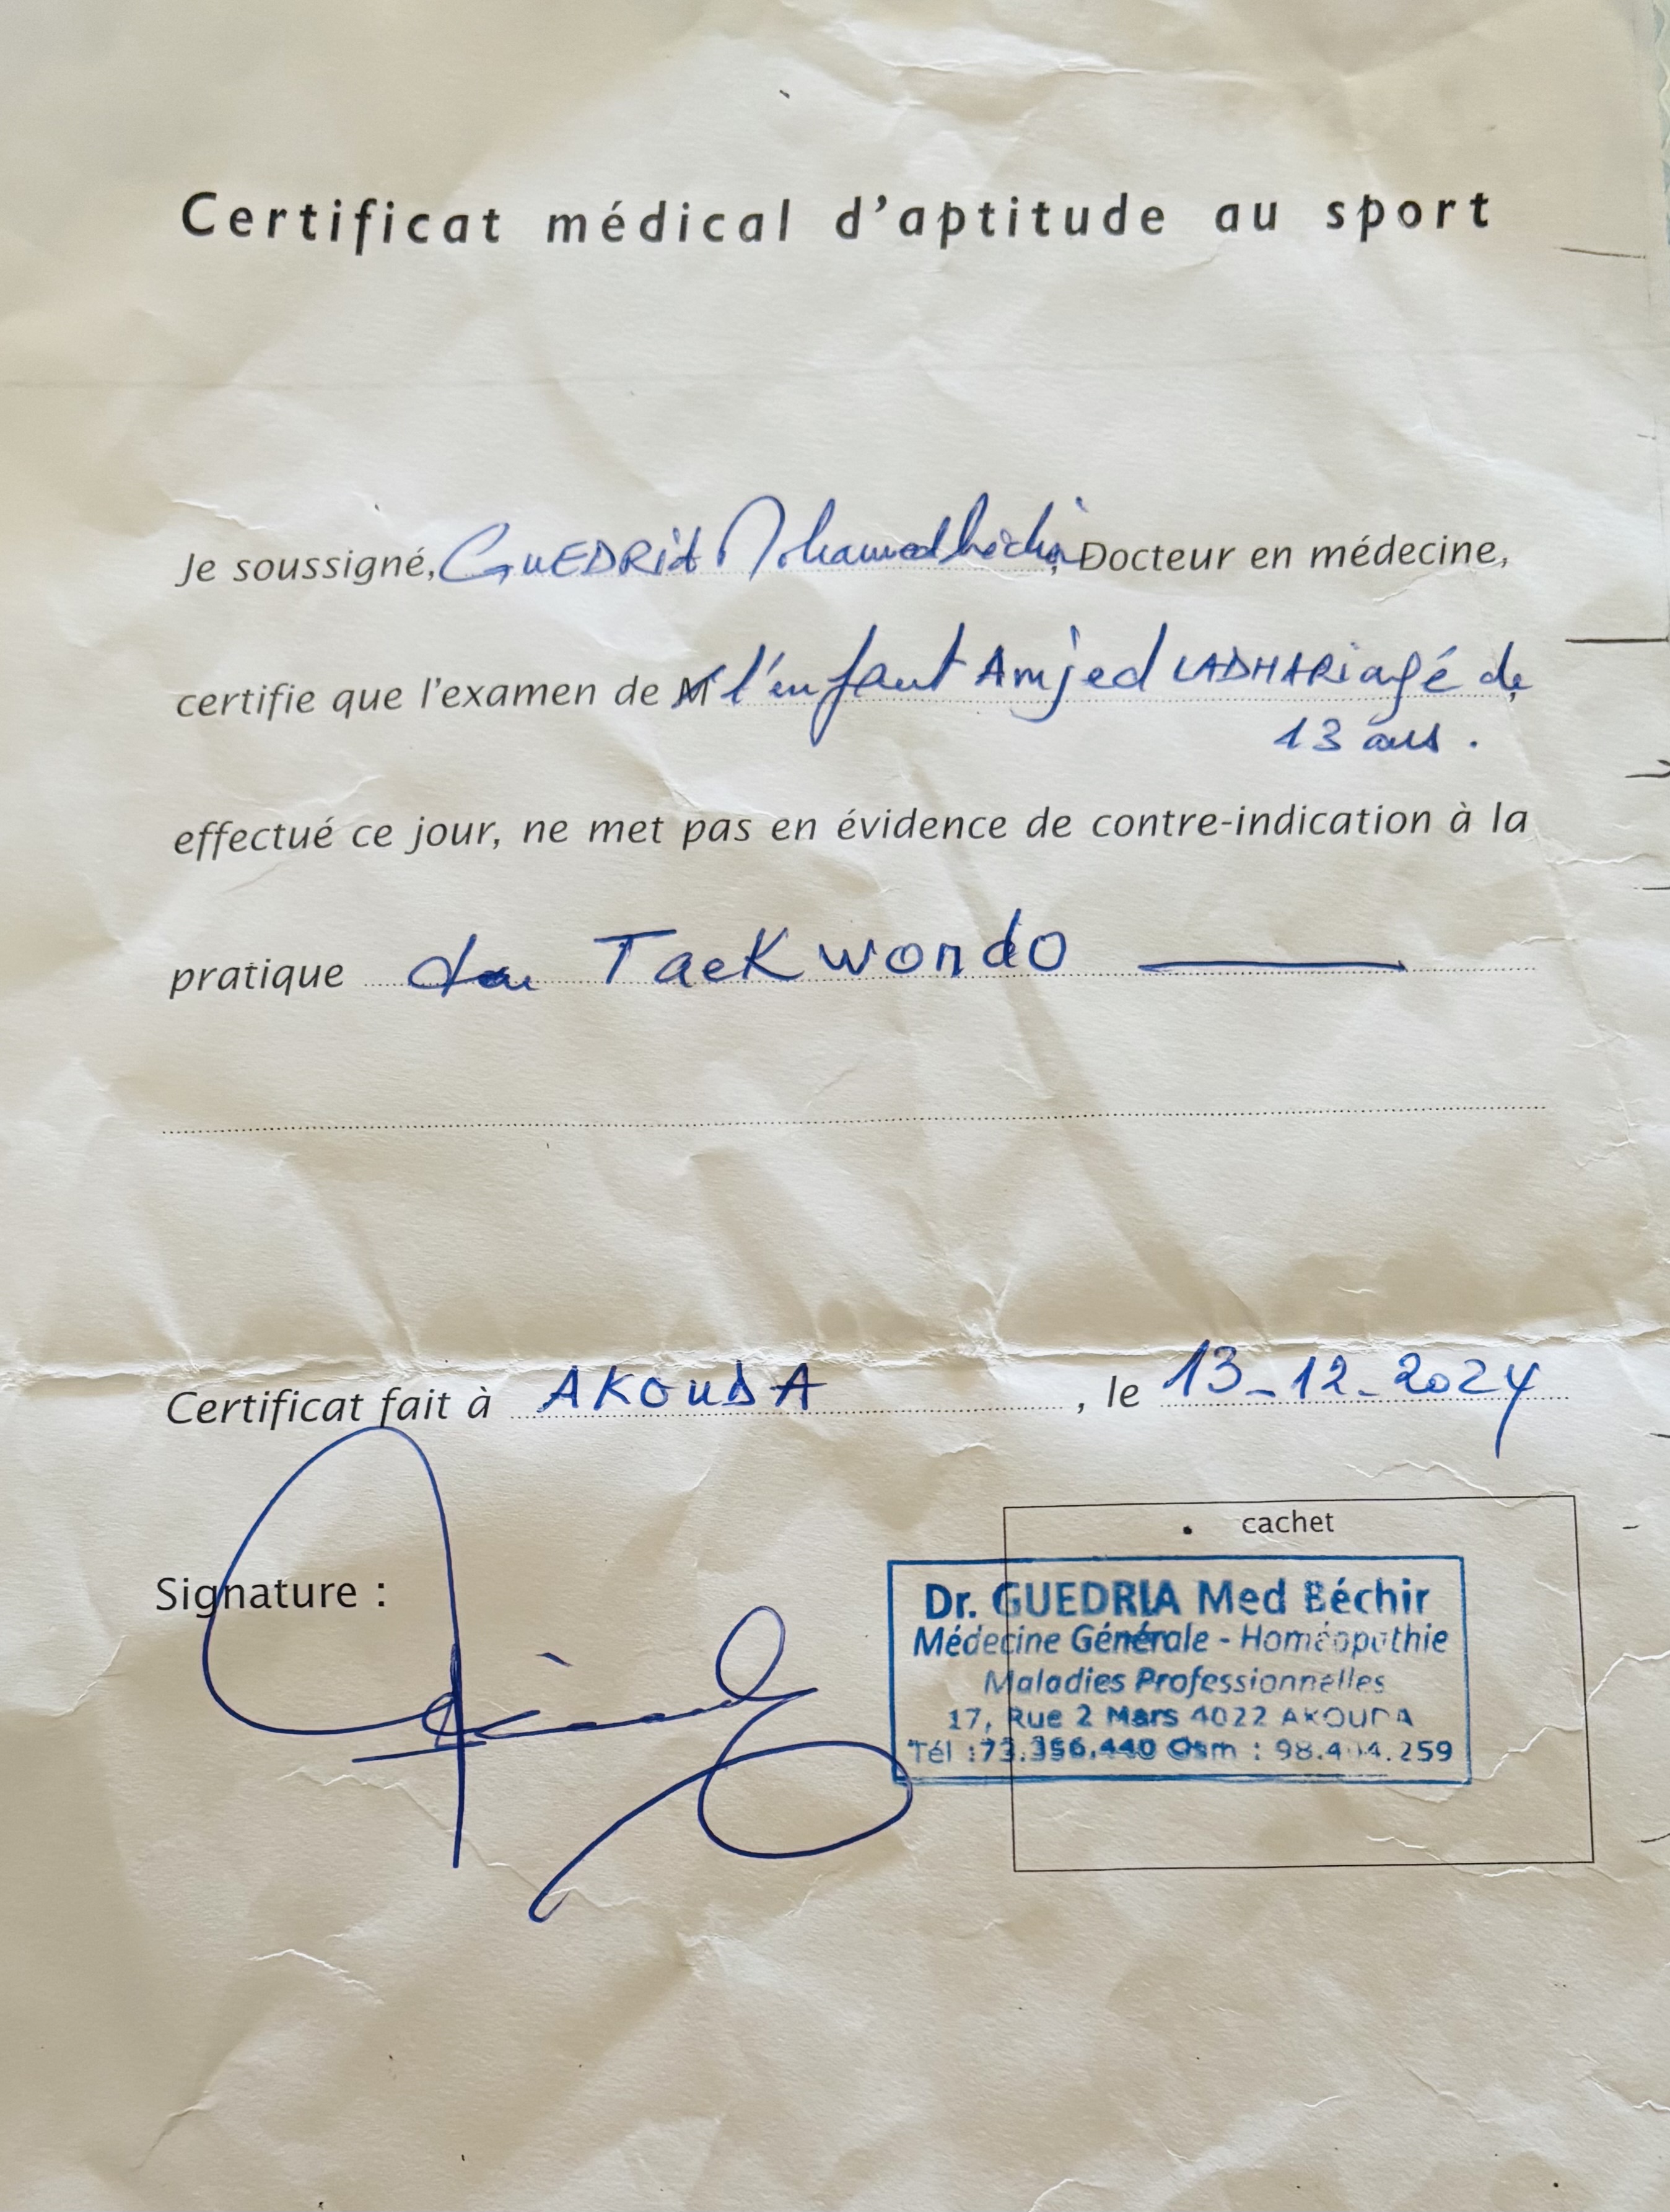 Certificat médical d'aptitude au sport
Je soussigné, GUEDRIA Mohamed Béchir, Docteur en médecine,
certifie que l'examen de M l'enfant Amjed LADHARI agé de
13 ans.
effectué ce jour, ne met pas en évidence de contre-indication à la
pratique du TaeKwondo
Certificat fait à AKOUDA, le 13-12-2024
cachet
Signature :
Dr. GUEDRIA Med Béchir
Médecine Générale - Homéopathie
Maladies Professionnelles
17, Rue 2 Mars 4022 AKOUDA
Tél : 73.356.440 Gsm :